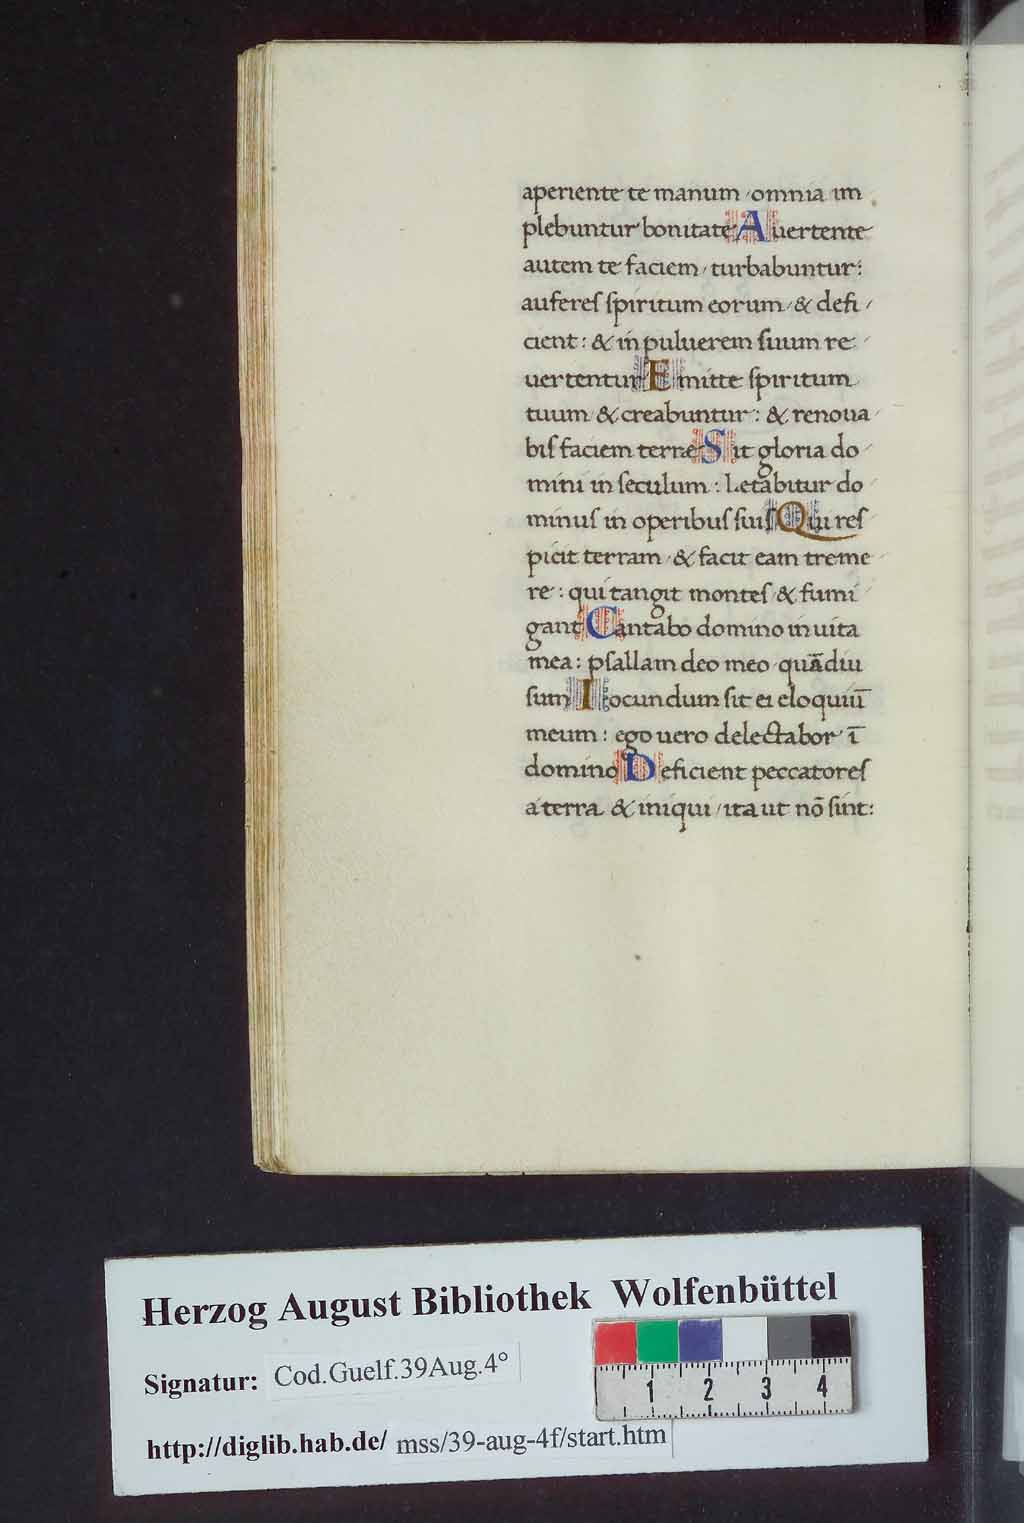 aperiente te manum / omnia im
plebuntur bonitate Auertente
autem te faciem / turbabuntur:
auferes spiritum eorum / & defi /
cient: & in puluerem suum re /
uertentur Emitte spiritum
tuum & creabuntur: & renoua /
bis faciem terrę Sit gloria do /
mini in seculum: Letabitur do /
minus in operibus suis Qui res /
picit terram / & facit eam treme /
re: qui tangit montes & fumi /
gant Cantabo domino in uita
mea: psallam deo meo quādiu
sum Iocundum sit ei eloquiū
meum: ego uero delectabor ī
domino Deficient peccatores
a terra & iniqui / ita ut nō sint:
Herzog August Bibliothek Wolfenbüttel
Signatur: Cod.Guelf.39Aug.4°
1 2 3 4
http://diglib.hab.de/ mss/39-aug-4f/start.htm